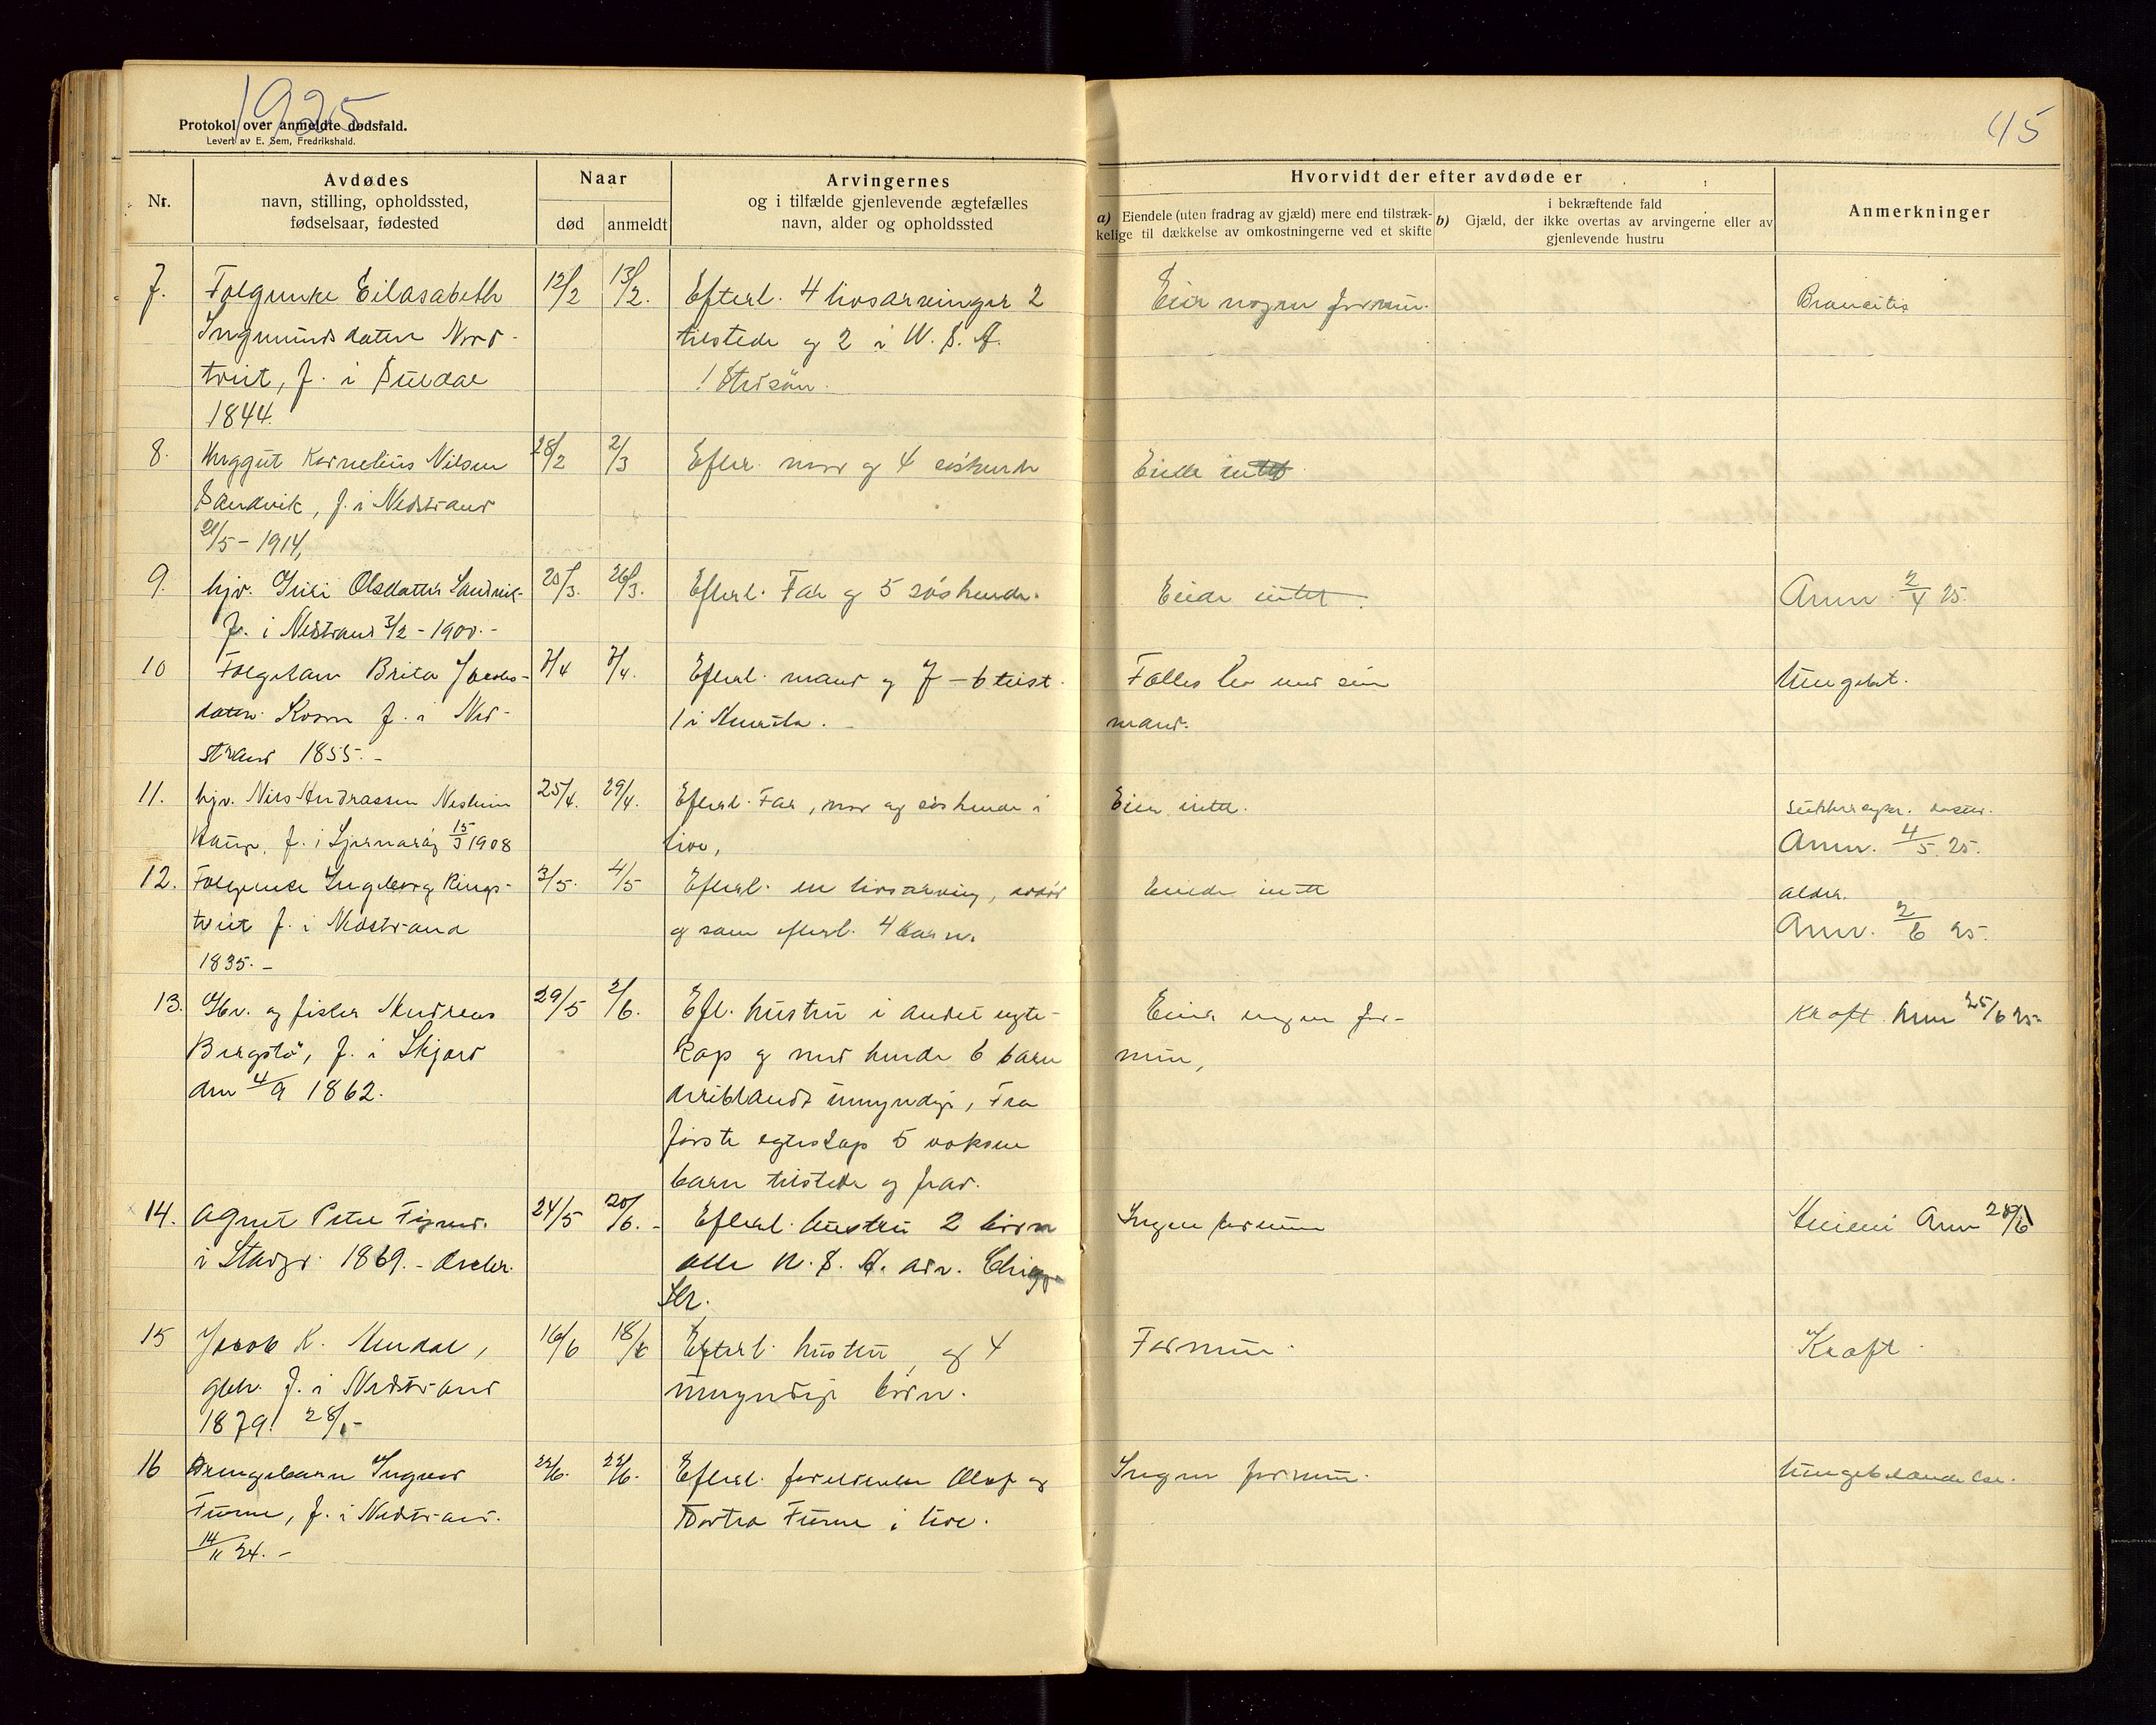 1925
45
Protokol over anmeldte dødsfald.
Levert av E. Sem, Fredrikshald.
Nr.
Avdødes
navn, stilling, opholdssted,
fødselsaar, fødested
Naar
død
anmeldt
Arvingernes
og i tilfælde gjenlevende ægtefælles
navn, alder og opholdssted
Hvorvidt der efter avdøde er
a) Eiendele (uten fradrag av gjæld) mere end tilstræk-
kelige til dækkelse av omkostningerne ved et skifte
b) i bekræftende fald
Gjæld, der ikke overtas av arvingerne eller av
gjenlevende hustru
Anmerkninger
7. Folgeunke Eilasabeth 12/2 13/2. Efterl. 4 livsarvinger 2 Eier nogen formue.
Ingmundsdatter Nord- tilstede og 2 i U. S. A.
tveit, f. i Suldal 1 Stedsøn.
1844.
8. Kornelius Nilsen 28/2 2/3 Efter. mor og 4 søskende Eiede intet
Sandvik, f. i Nedstrand
21/5 - 1914,
9. hjv. Olsdatter Sandvik- 25/3. 26/3. Efterl. Far og 5 søskende. Eiede intet. Anm. 2/4 25.
f. i Nedstrand 3/2 - 1900. -
10 Brita Jacobs- 7/4 7/4. Efterl. mand og 7 - 6 Felles bo med sin
datter f. i Ned- 1 i Amerika. - mand.
strand 1855. -
11. hjv. Nils Andreassen 25/4. 29/4. Efterl. Far, mor og søskende i Eier intet.
f. i Sjernarøy 15/3 1908 live, Anm. 4/5. 25.
12. Folgeunke Ingeborg Rings- 3/5. 4/5 Efterl. en livsarving, Eiede intet alder.
tveit f. i Nedstrand og som efterl. 4 barn. Anm. 2/6 25.
1835. -
13. Gbr. og fisker Andreas 29/5 2/6. Efl. hustru i andet egte- Eier ingen for- Kraft. Anm 25/6 25-
Bergstø, f. i Skjold kap og med hende 6 barn mue,
den 4/9 1862. deriblandt umyndige, Fra
første egteskap 5 voksne
barn tilstede og frav.
14. Agnet Peter 24/5 20/6. - Efterl. hustru 2 børn Ingen formue Anm 28/6
i 1869. - alle U. S. A.
15 Jacob K. 16/6 18/6 Efterl. hustru, og 4 Formue. Kraft.
gbr. f. i Nedstrand umyndige børn.
1879. 28/1-
16 Drengebarn Ingvar 22/6. 22/6. Efterl. foreldrene Olaf og Ingen formue. Lungebetændelse.
Furne, f. i Nedstrand. Bertha Furne i live.
14/11 24. -